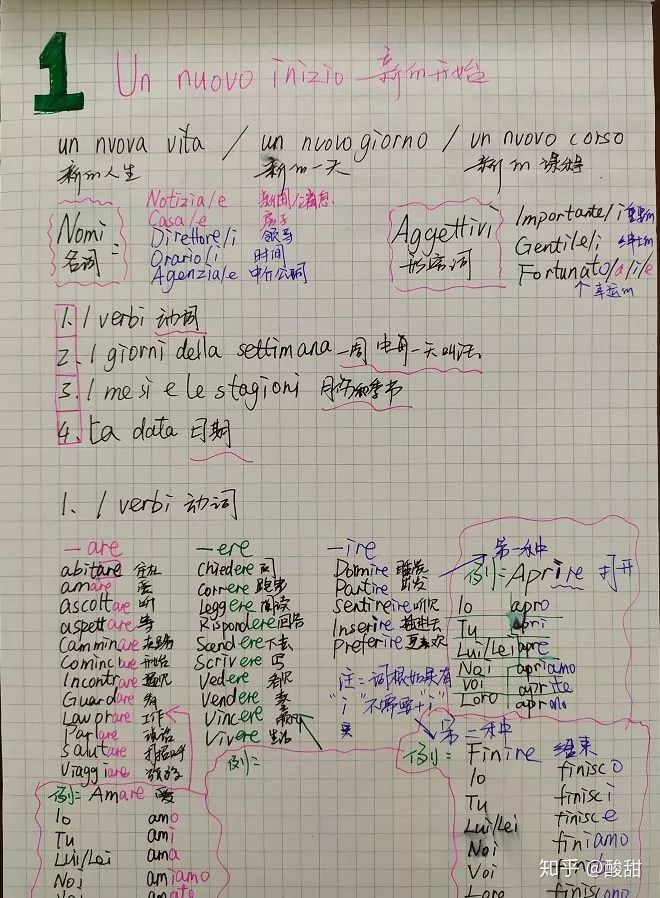 1 Un nuovo inizio 新的开始
un nuova vita / un nuovo giorno / un nuovo corso
新的人生 新的一天 新的课程
Nomi 名词 =
Notizia/e 新闻/消息
Casa/e 房子
Direttore/i 领导
Orario/i 时间
Agenzia/e 中介公司
Aggettivi 形容词
Importante/i 重要的
Gentile/i 绅士的
Fortunato/a/i/e
个 幸运的
1. I verbi 动词
2. I giorni della settimana 一周中每一天叫法
3. I mesi e le stagioni 月份和季节
4. La data 日期
1. I verbi 动词
-are
abitare 居住
amare 爱
ascoltare 听
aspettare 等
Camminare 走路
Cominciare 开始
Incontrare 遇见
Guardare 看
Lavorare 工作
Parlare 说话
Salutare 打招呼
Viaggiare 旅行
-ere
Chiedere 问
Correre 跑步
Leggere 阅读
Rispondere 回答
Scendere 下去
Scrivere 写
Vedere 看见
Vendere 卖
Vincere
Vivere 生活
例:
-ire
Dormire 睡觉
Partire 出发
Sentireire 听见
Inserire
Preferire 更喜欢
注:词根如果有
"i" 不需要+"i"
第一种
例:Aprire 打开
Io apro
Tu apri
Lui/Lei apre
Noi apriamo
Voi aprite
Loro aprono
第二种
例:Finire 结束
Io finisco
Tu finisci
Lui/Lei finisce
Noi finiamo
Voi finite
Loro finiscono
例:Amare 爱
Io amo
Tu ami
Lui/Lei ama
Noi amiamo
Voi amato
知乎 @酸甜